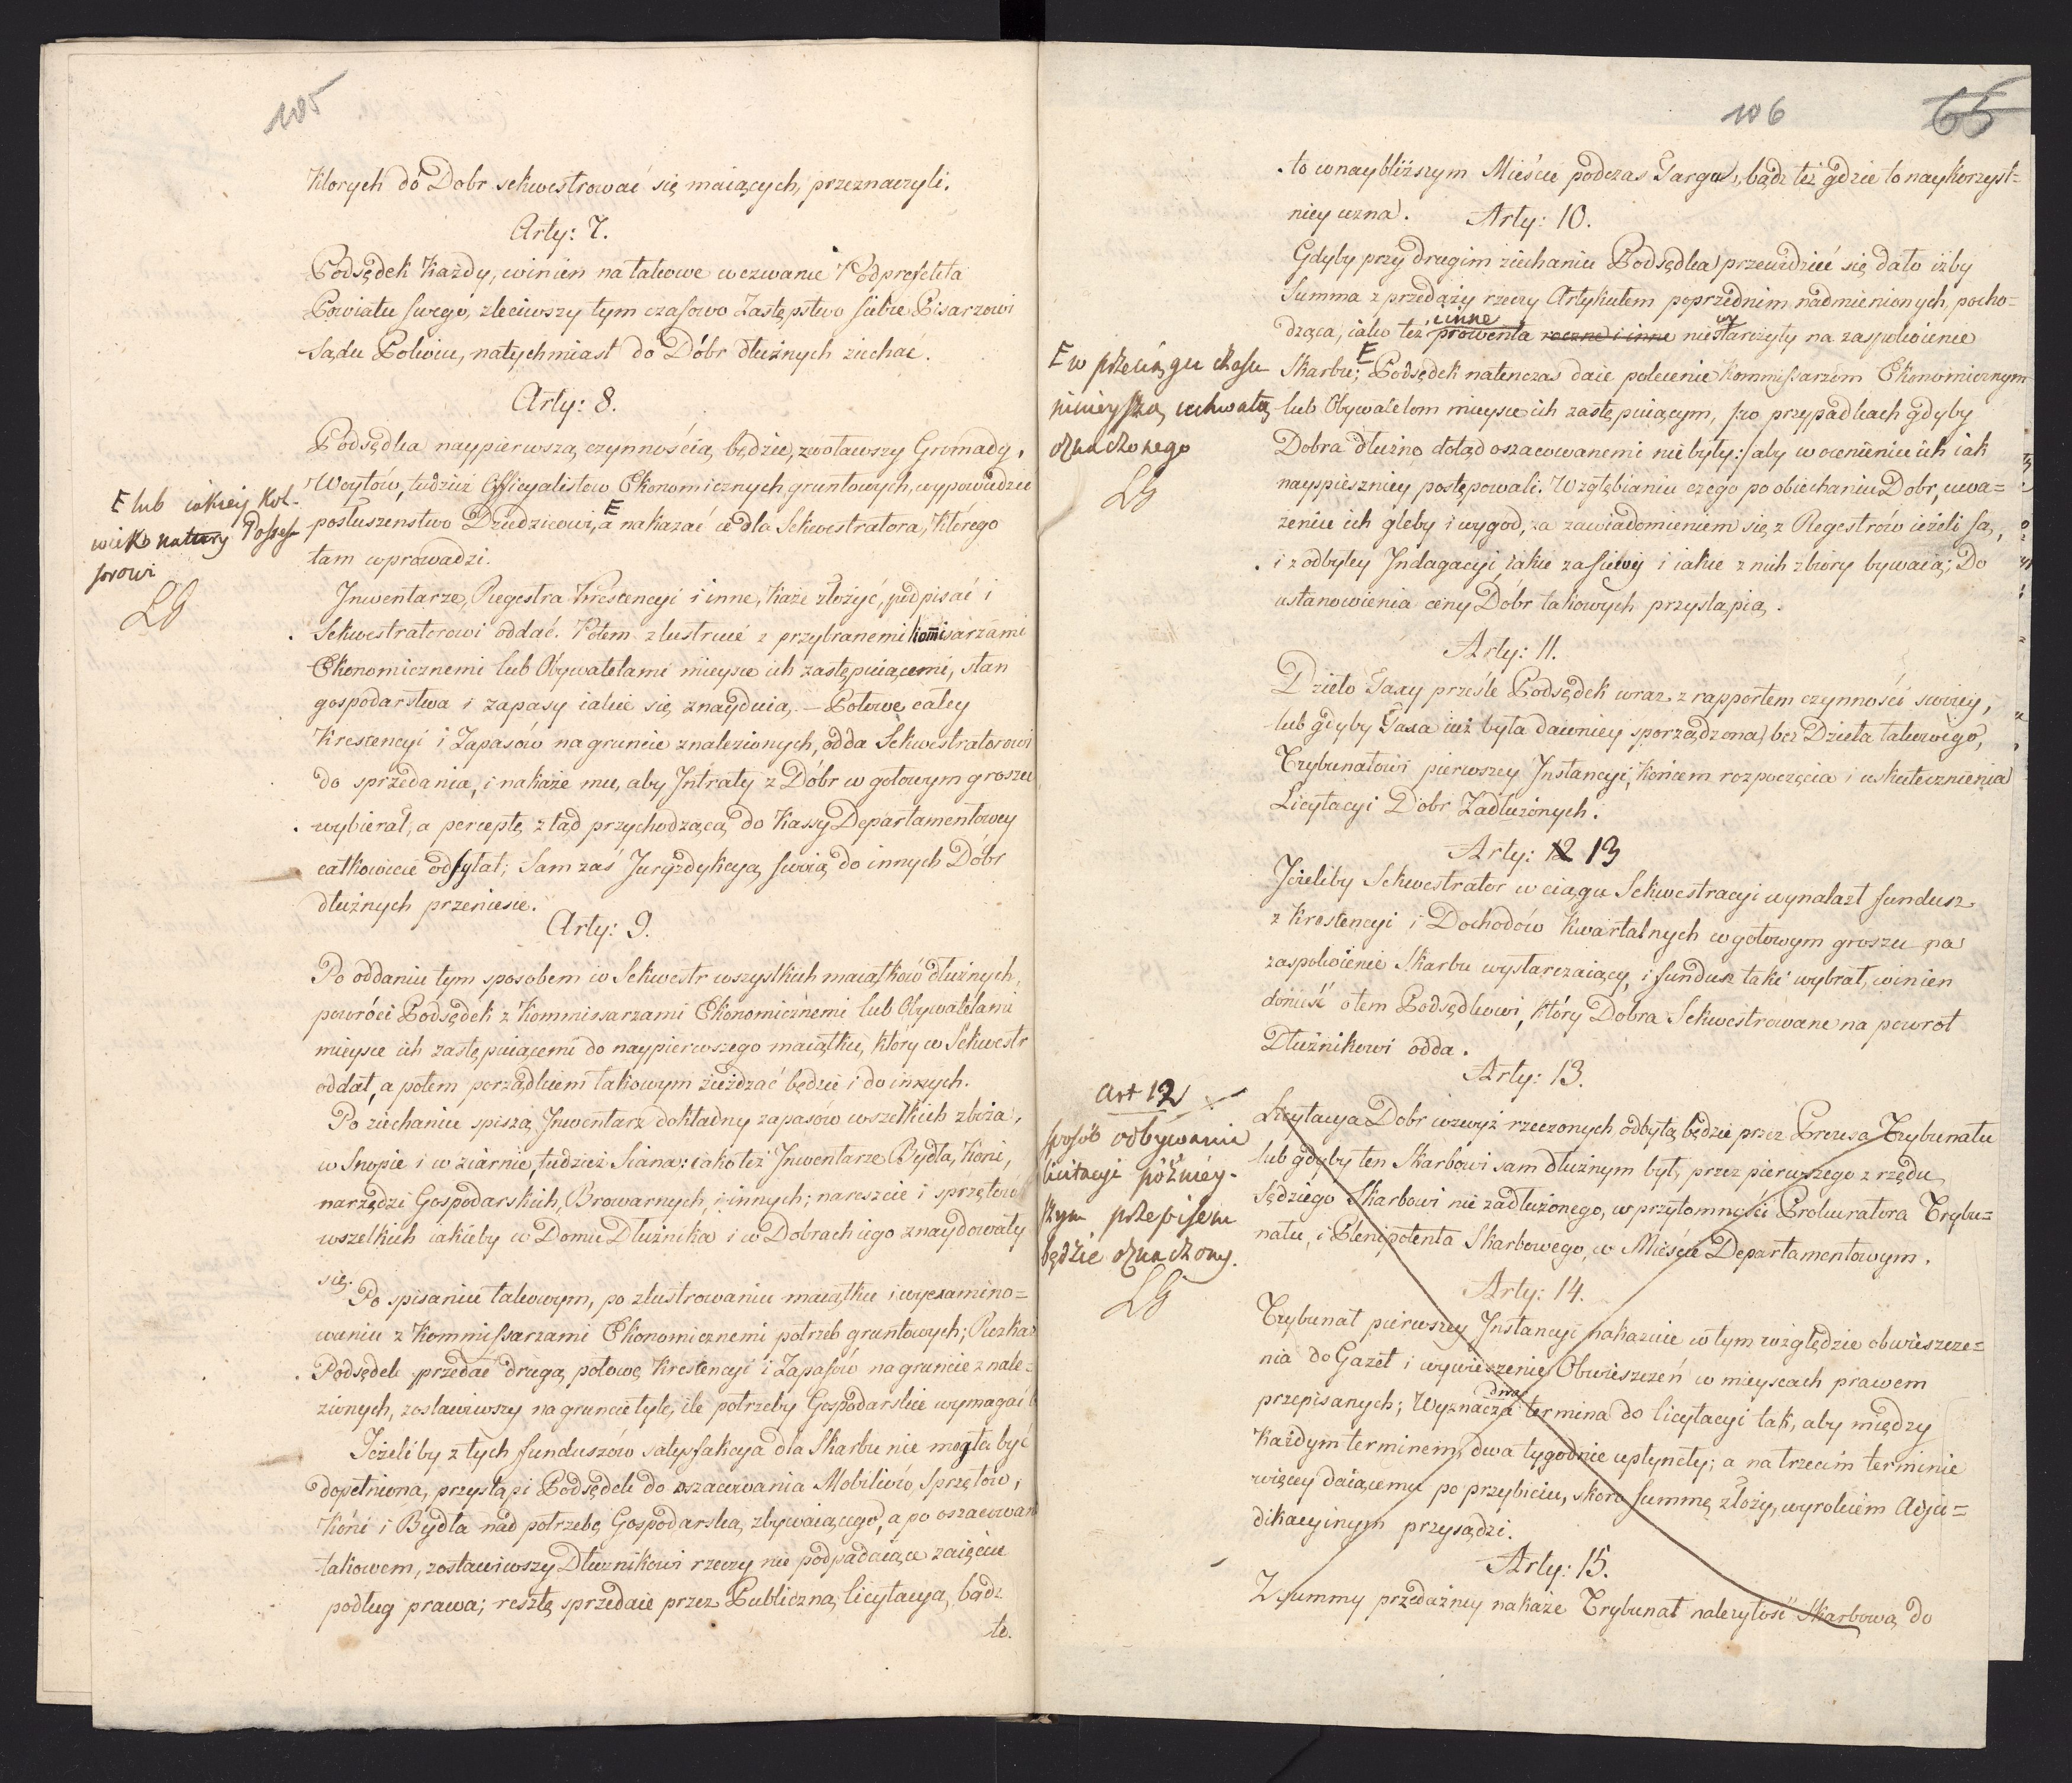 105
Ktorych do Dobr sekwestrować się maiących, przeznaczyli.
Arty: 7.
Podsędek Każdy, winien na takowe wezwanie Podprefekta
Powiatu swego, zleciwszy tym czasowo Zastępstwo siebie Pisarzowi
Sądu Pokoiu, natychmiast do Dóbr dłużnych ziechać.
Arty: 8.
Podsędka naypierwszą czynnością będzie, zwoławszy Gromady,
Woytów, tudzież Officyalistow Ekonomicznych gruntowych, wypowiedzieć
posłuszenstwo Dziedzicowi, E a nakazać ie dla Sekwestratora, którego
tam wprowadzi.
E lub iakiey kol-
wiek natury Possess-
sorowi
LG
Inwentarze, Regestra Krescencyi i inne, każe złożyć, podpisać i
Sekwestratorowi oddać. Potem zlustruie z przybranemi Kommisarzami
Ekonomicznemi lub Obywatelami mieysce ich zastępuiącemi, stan
gospodarstwa i zapasy iakie się znayduią. – Połowę całey
Krescencyi i Zapasów na gruncie znalezionych, odda Sekwestratorowi
do sprzedania, i nakaże mu, aby Intraty z Dóbr w gotowym groszu
wybierał, a perceptę ztąd przychodzącą do Kassy Departamentowey
całkowicie odsyłał; Sam zaś Juryzdykcyą swoią do innych Dóbr
dłużnych przeniesie.
Arty: 9.
Po oddaniu tym sposobem w Sekwestr wszystkich maiątków dłużnych,
powróci Podsędek z Kommissarzami Ekonomicznemi lub Obywatelami
mieysce ich zastępuiącemi do naypierwszego maiątku, który w Sekwestr
oddał, a potem porządkiem takowym zieżdzać będzie i do innych.
Po ziechaniu spiszą Inwentarz dokładny zapasów wszelkich zboża,
w Snopie i w ziarnie, tudzież Siana: iako też Inwentarze Bydła, Koni,
narzędzi Gospodarskich, Browarnych, i innych; nareszcie i sprzętów
wszelkich iakieby w Domu Dłużnika i w Dobrach iego znaydowały
się.
Po spisaniu takowym, po zlustrowaniu maiątku i wyexamino=
waniu z Kommissarzami Ekonomicznemi potrzeb gruntowych; Rozkaże
Podsędek przedać drugą połowę Krescencyi i Zapasów na gruncie znale=
zionych, zostawiwszy na gruncie tyle, ile potrzeby Gospodarskie wymagać
Jeżeliby z tych funduszów satysfakcya dla Skarbu nie mogła być
dopełniona, przystąpi Podsędek do oszacowania Mobiliów, Sprzętów,
Koni i Bydła nad potrzebę Gospodarską zbywaiącego, a po oszacowaniu
takowem, zostawiwszy Dłużnikowi rzeczy nie podpadaiące zaięciu
podług prawa; resztę sprzedaie przez Publiczną licytacyą, bądź
to.
106
65
to w naybliższym Mieście podczas Targu, bądź też gdzie to naykorzyst=
niey uzna.
Arty: 10.
Gdyby przy drugim ziechaniu Podsędka przewidzieć się dało iżby
Summa z przedaży rzeczy Artykułem poprzednim nadmienionych, pocho=
dząca, iako też inne prowenta roczne i inne niewystarczyły na zaspokoienie
Skarbu; E Podsędek natenczas daie polecenie Kommissarzom Ekonomicznym
lub Obywatelom mieysce ich zastępuiącym, /:w przypadkach gdyby
Dobra dłużne dotąd oszacowanemi nie były:/ aby w ocenieniu ich iak
nayspieszniey postępowali. W zgłębianiu czego po obiechaniu Dobr, uwa=
żeniu ich gleby i wygod, za zawiadomieniem się z Regestrów ieżeli są,
i z odbytey Indagacyi iakie zasiewy i iakie z nich zbiory bywaią; Do
ustanowienia ceny Dóbr takowych przystąpią.
E w przeciągu czasu
ninieyszą uchwałą
oznaczonego
LG
Arty: 11.
Dzieło Taxy prześle Podsędek wraz z rapportem czynności swoiey,
lub gdyby Taxa iuż była dawniey sporządzona, bez Dzieła takowego,
Trybunałowi pierwszey Instancyi, końcem rozpoczęcia i uskutecznienia
Licytacyi Dobr Zadłużonych.
Arty: 12 13
Jeżeliby Sekwestrator w ciągu Sekwestracyi wynalazł fundusz
z Krescencyi i Dochodów Kwartalnych w gotowym groszu na
zaspokoienie Skarbu wystarczaiący, i fundusz taki wybrał, winien
donieść o tem Podsędkowi, który Dobra Sekwestrowane na powrot
Dłużnikowi odda.
Art 12
sposób odbywania
licitacyi późniéy-
szym przepisem
będzie oznaczony.
LG
Arty: 13.
Licytacya Dobr wzwyż rzeczonych odbytą będzie przez Prezesa Trybunału
lub gdyby ten Skarbowi sam dłużnym był, przez pierwszego z rzędu
Sędziego Skarbowi nie zadłużonego, w przytomności Prokuratora Trybu=
nału, i Plenipotenta Skarbowego, w Mieście Departamentowym.
Arty: 14.
Trybunał pierwszey Instancyi nakazuie w tym względzie obwieszcze=
nia do Gazet i wywieszenie Obwieszczeń w mieyscach prawem
przepisanych; Wyznacza dwa termina do licytacyi tak, aby między
Każdym terminem, dwa tygodnie upłynęły; a na trzecim terminie
więcey daiącemu po przybiciu, skoro summę złoży, wyrokiem Adju=
dikacyinym przysądzi.
Arty: 15.
Z summy przedażney nakaże Trybunał należytość Skarbową do